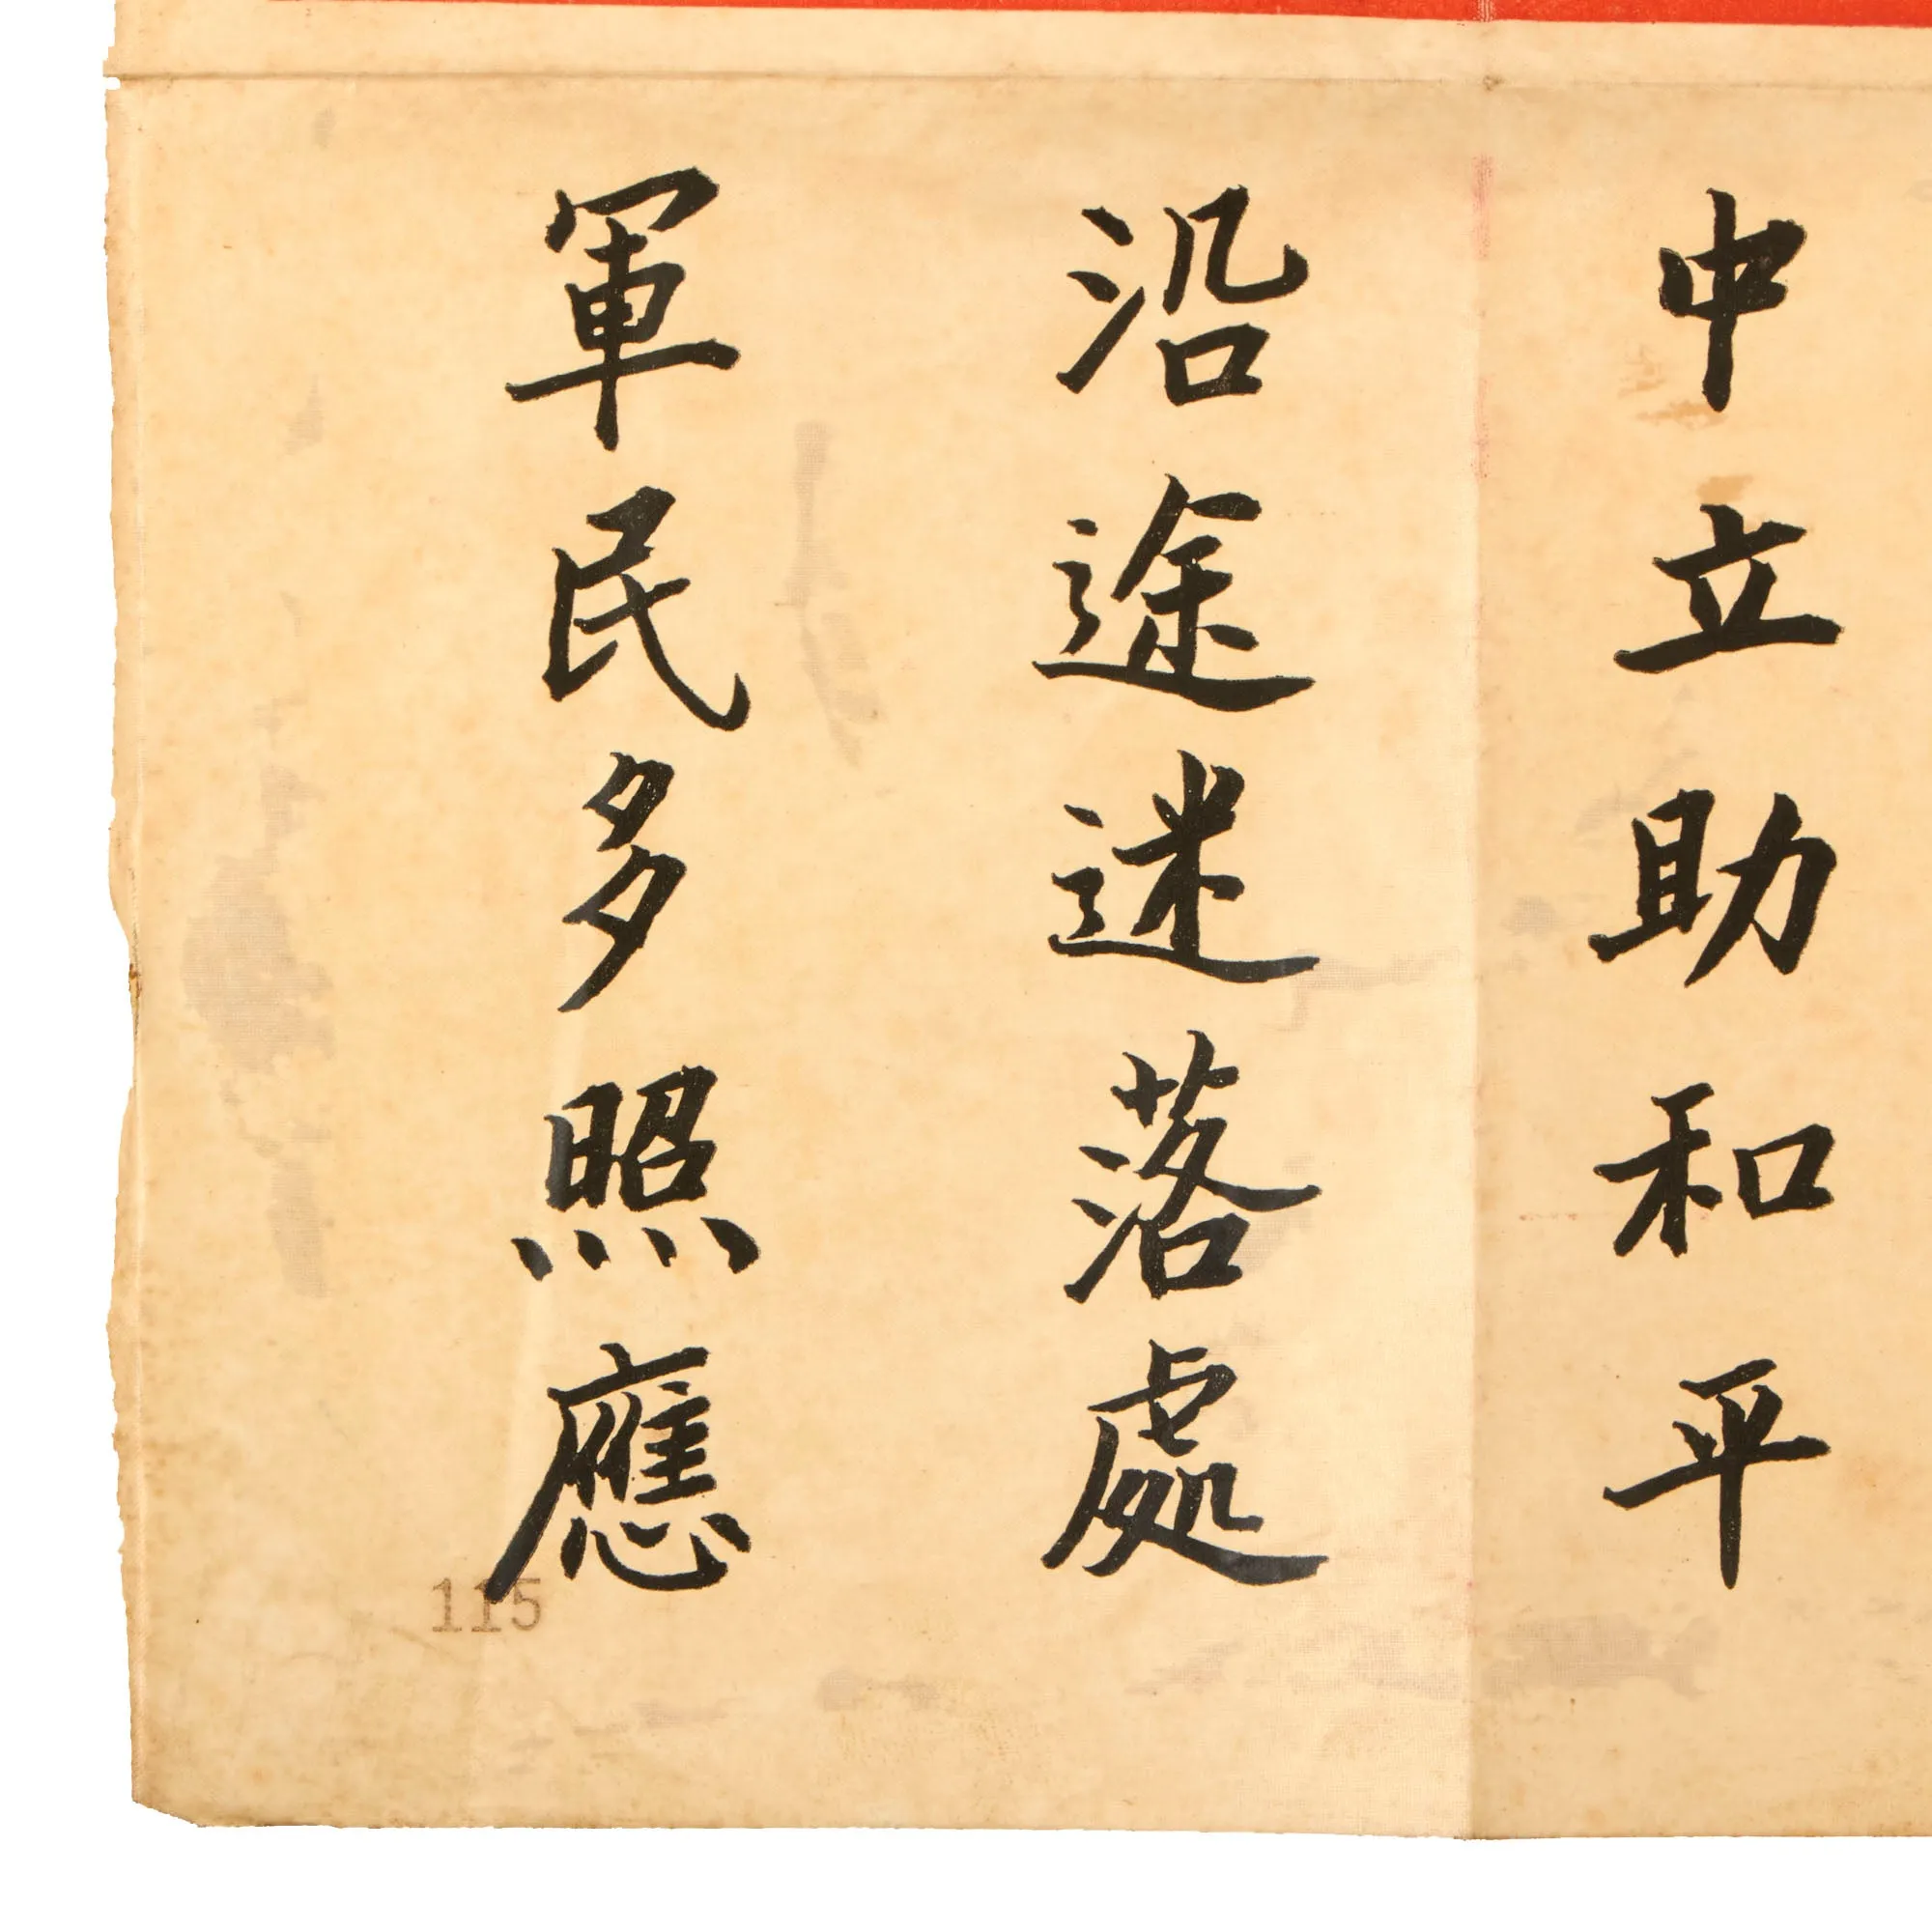 中立助和平
沿途迷落處
軍民多照應
115